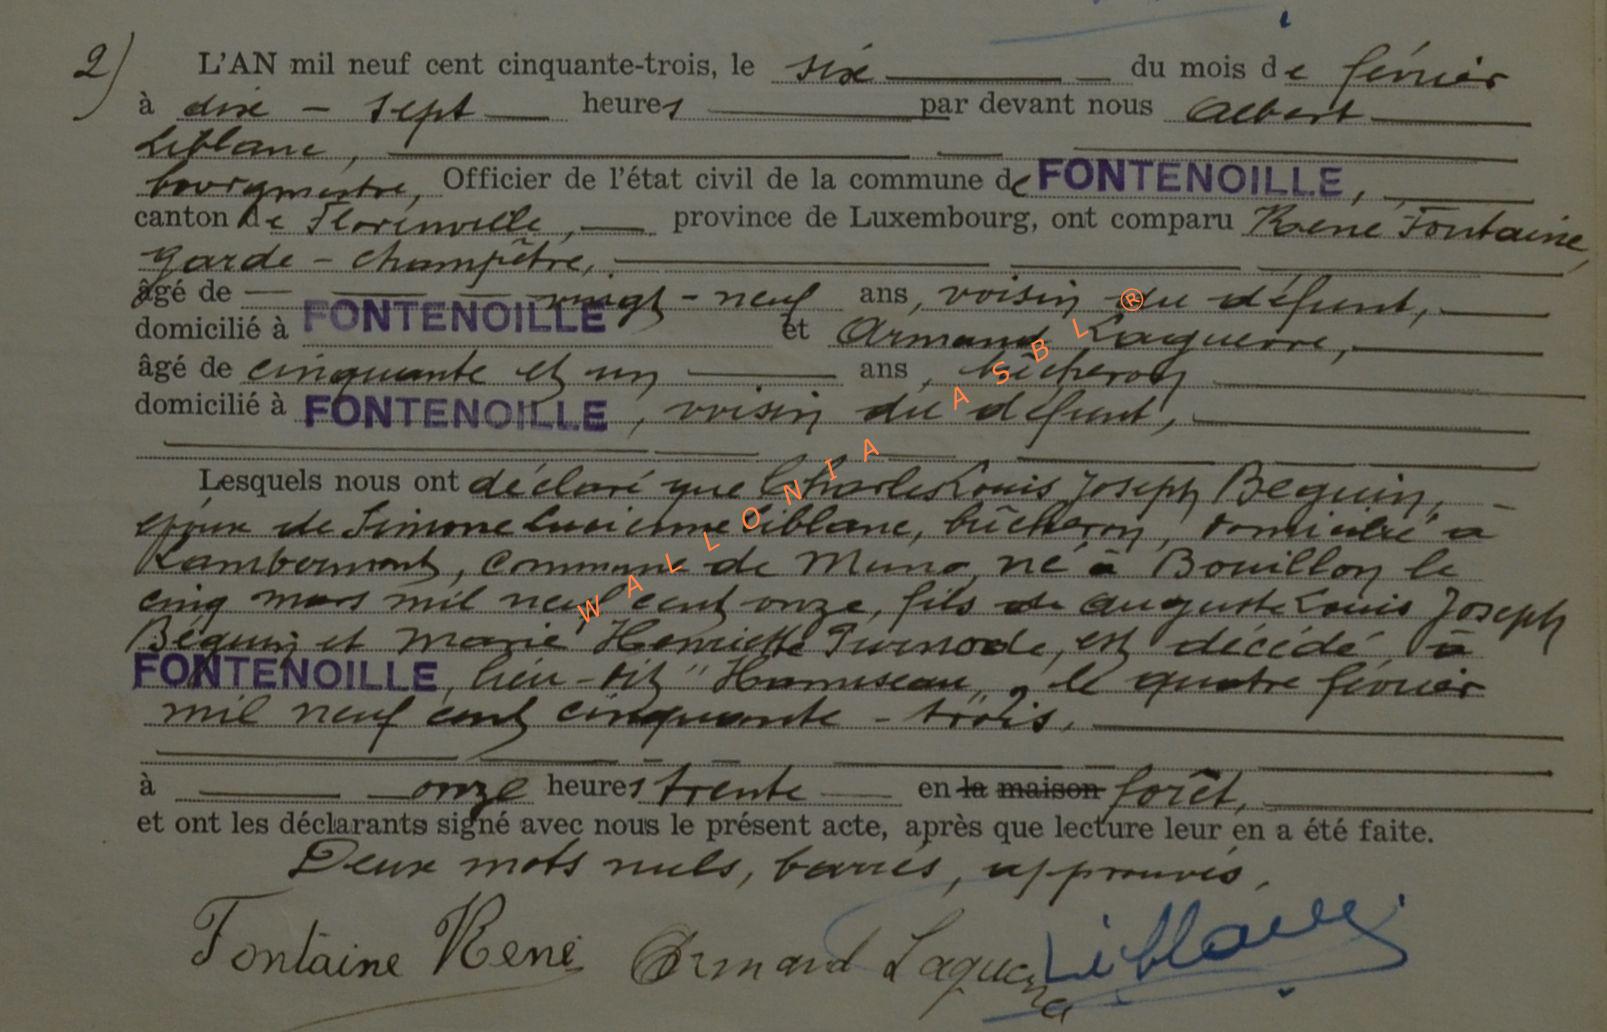 2) L'AN mil neuf cent cinquante-trois, le six du mois de février
à dix-sept heures par devant nous Albert
Liblanc,
bourgmestre, Officier de l'état civil de la commune de FONTENOILLE,
canton de Florenville, province de Luxembourg, ont comparu René Fontaine,
garde-champêtre,
âgé de vingt-neuf ans, voisin du défunt,
domicilié à FONTENOILLE et Armand Laguerre,
âgé de cinquante et un ans, bûcheron
domicilié à FONTENOILLE, voisin du défunt,
Lesquels nous ont déclaré que Charles Louis Joseph Beguin,
époux de Simone Lucienne Liblanc, bûcheron, domicilié à
Lambermont, commune de Muno, né à Bouillon le
cinq mars mil neuf cent onze, fils de Auguste Louis Joseph
Béguin et Marie Henriette, est décédé à
FONTENOILLE, lieu-dit " ", le quatre février
mil neuf cent cinquante-trois,
à onze heures trente en la maison forêt,
et ont les déclarants signé avec nous le présent acte, après que lecture leur en a été faite.
Deux mots nuls, barrés, approuvés.
Fontaine René Armand Laguerre Liblanc
WALLONIA ASBL ®